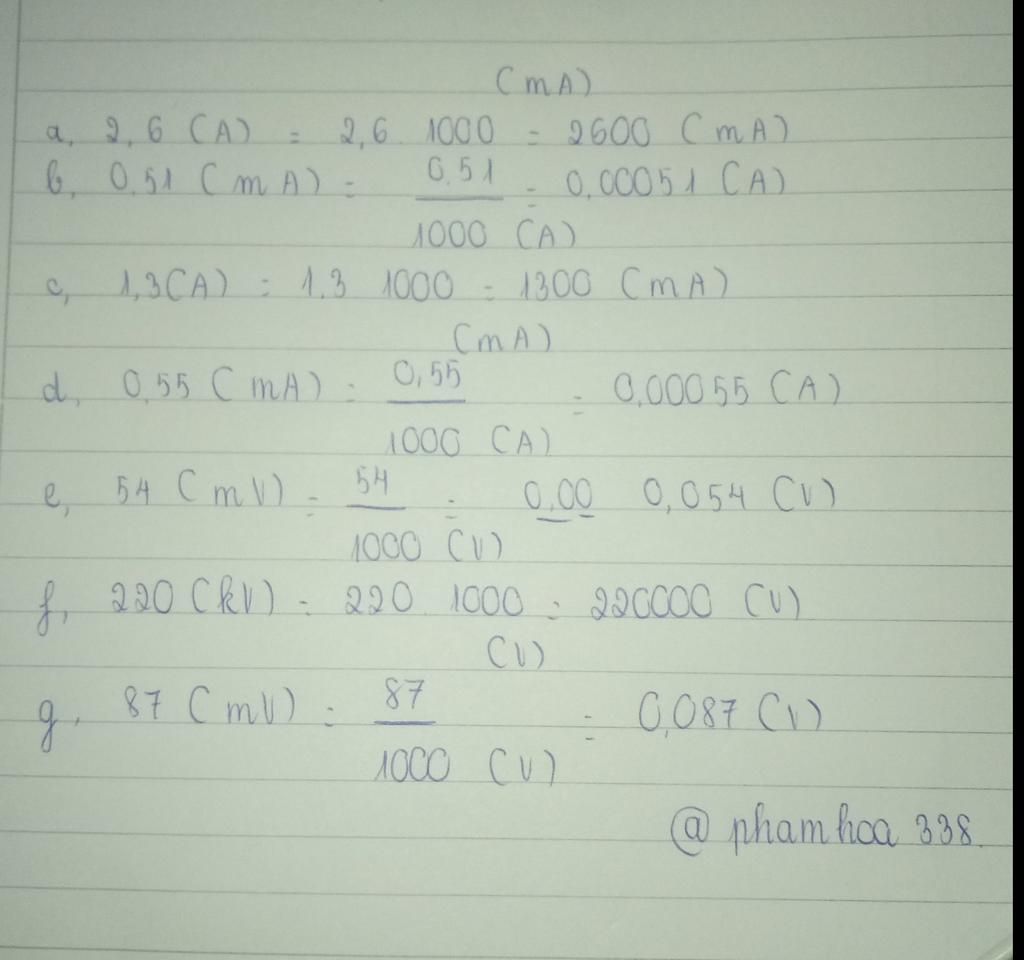 (mA)
a, 2,6 (A) = 2,6 . 1000 = 2600 (mA)
b, 0,51 (mA) = 0,51 = 0,00051 (A)
1000 (A)
c, 1,3(A) = 1.3 1000 = 1300 (mA)
(mA)
d, 0,55 (mA) = 0,55 = 0,00055 (A)
1000 (A)
e, 54 (mV) = 54 = 0,00 0,054 (V)
1000 (V)
f, 220 (kV) = 220 . 1000 = 220000 (V)
(V)
g, 87 (mV) = 87 = 0,087 (V)
1000 (V)
@ phamhoa 338.